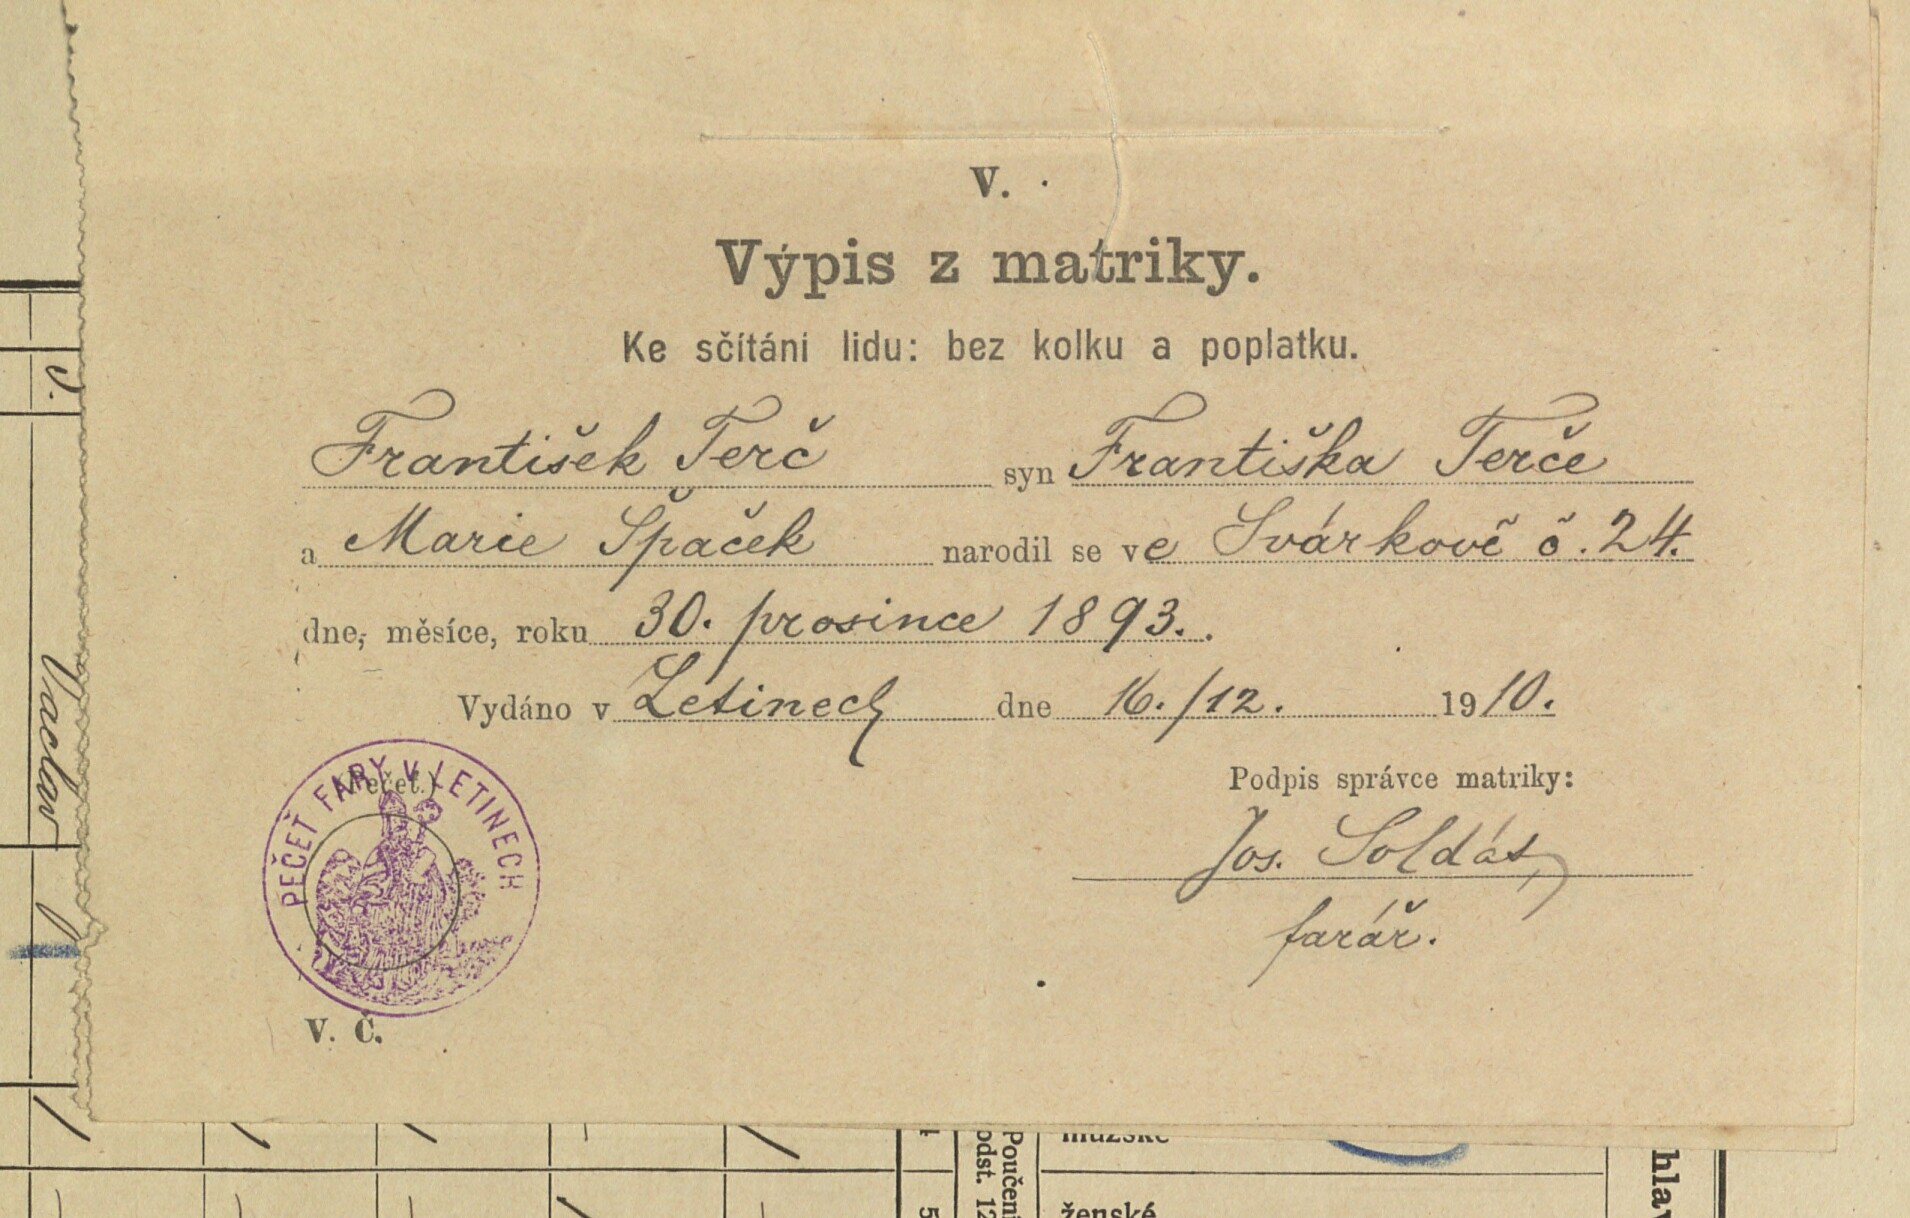 V.
Výpis z matriky.
Ke sčítáni lidu: bez kolku a poplatku.
František Terč syn Františka Terče
a Marie Špaček narodil se ve Svárkově č. 24.
dne, měsíce, roku 30. prosince 1893.
Vydáno v Letinech dne 16./12. 1910.
Podpis správce matriky:
Jos. Soldát,
farář.
PEČEŤ FARY V LETINECH
V. Č.
Václav
mužské
ženské
Poučení
odst. 12
hlav
4
5